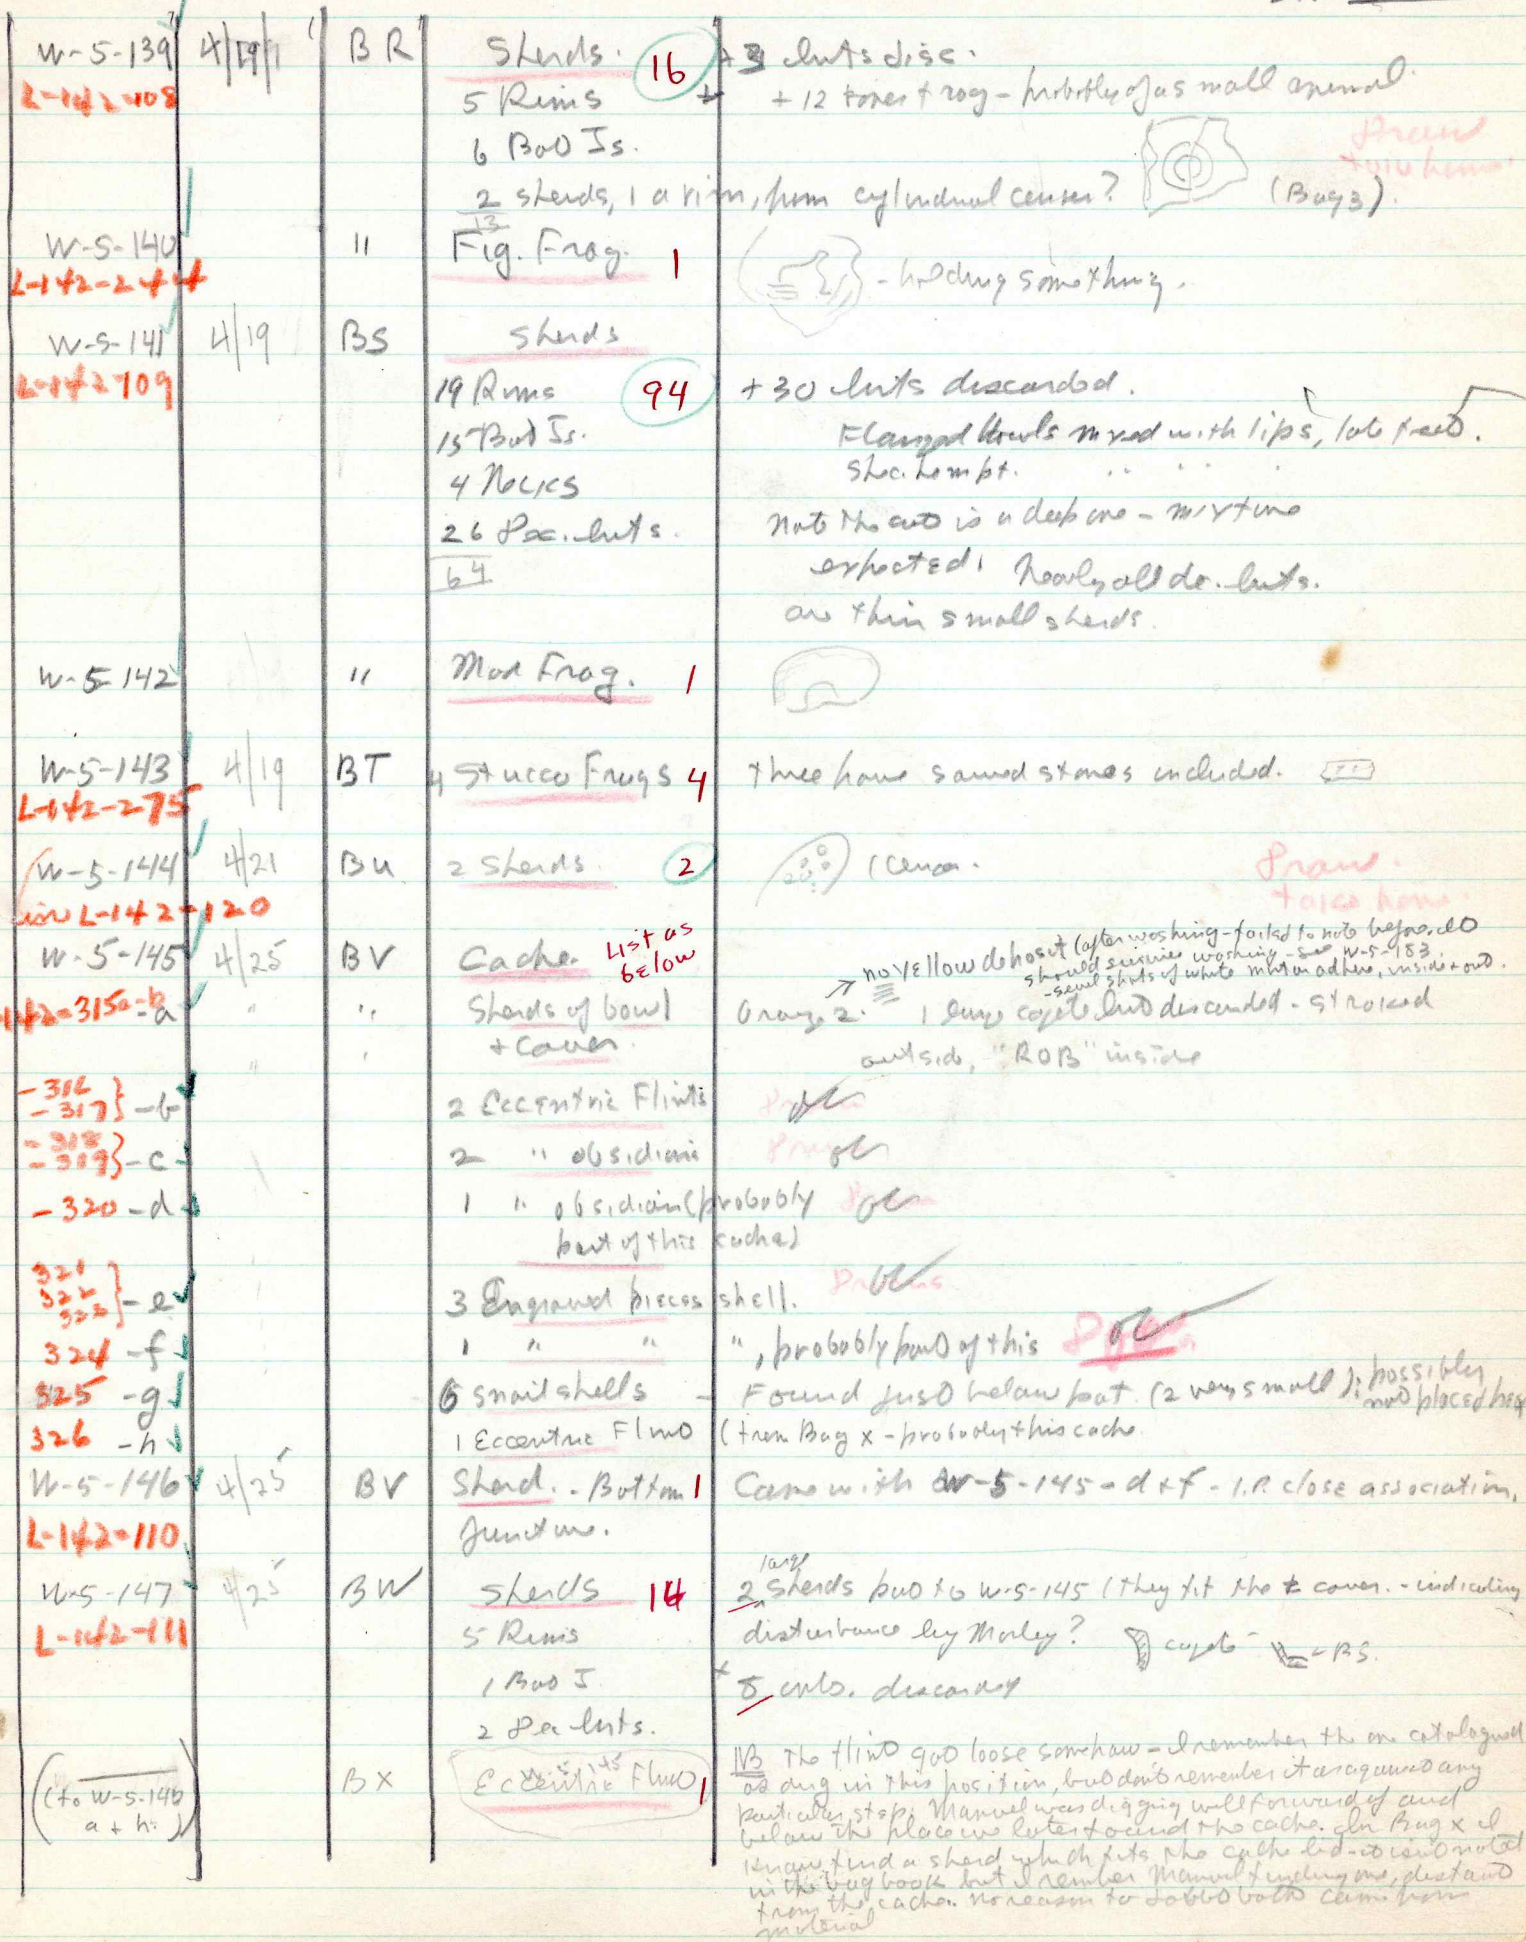 W-5-139 4/19 BR Sherds. 16 + 3 buts disc.
L-142-108 5 Rims + 12 bones + frog - probably of a small animal.
6 Bot Js. Draw
2 sherds, 1 a rim, from cylindrical censer? (Bag 3).
13
W-5-140 " Fig. Frag. 1 - holding something.
L-142-244
W-5-141 4/19 BS Sherds
L-142-109 19 Rims 94 + 30 buts discarded.
15 Bot Js. Flanged bowls mixed with lips, lab feet.
4 Necks
26 Dec. buts. Note the cut is a deep one - mixture
64 expected. Nearly all dec. buts.
are thin small sherds.
W-5-142 " Frag. 1
W-5-143 4/19 BT 4 Stucco Frags 4 three have sawed stones included.
L-142-275
W-5-144 4/21 BU 2 Sherds. 2 Draw.
in L-142-120 take home
W-5-145 4/25 BV Cache. List as below
no yellow deposit (after washing - failed to note before. It
should survive washing - see W-5-183
- several spots of white material adhere, inside + out.
142-315a-b -a " " Sherds of bowl 1 large coyote but discarded - stroked
+ cover. outside, "ROB" inside
-316
-317} -b 2 Eccentric Flints ok
-318
-319} -c 2 " obsidians ok
-320 -d 1 " obsidian (probably ok
part of this cache)
321
322
323} -e 3 Engraved pieces shell. ok
324 -f 1 " " ", probably part of this ok
325 -g 6 snail shells - Found just below pot. (2 very small); possibly
not placed here
326 -h 1 Eccentric Flint (from Bag x - probably this cache.
W-5-146 4/25 BV Sherd. - Bottom 1 Came with W-5-145-d+f - I.P. close association.
L-142-110 Juncture.
W-5-147 4/25 BW Sherds 14 2 large sherds put to W-5-145 (they fit the cover. - indicating
L-142-111 5 Rims disturbance by Morley? coyote - BS.
1 Bot J. + 8 buts. discarded
2 Dec buts.
(to W-5-145 a + h) BX W-5-145 Eccentric Flint 1 NB The flint got loose somehow - I remember the one catalogued
as dug in this position, but don't remember it as against any
particular step. Manuel was digging well forward of and
below the place we later found the cache. In Bag x I
know find a sherd which fits the cache lid - it isn't noted
in the bag book but I remember Manuel finding one, distant
from the cache. No reason to doubt both came from
material